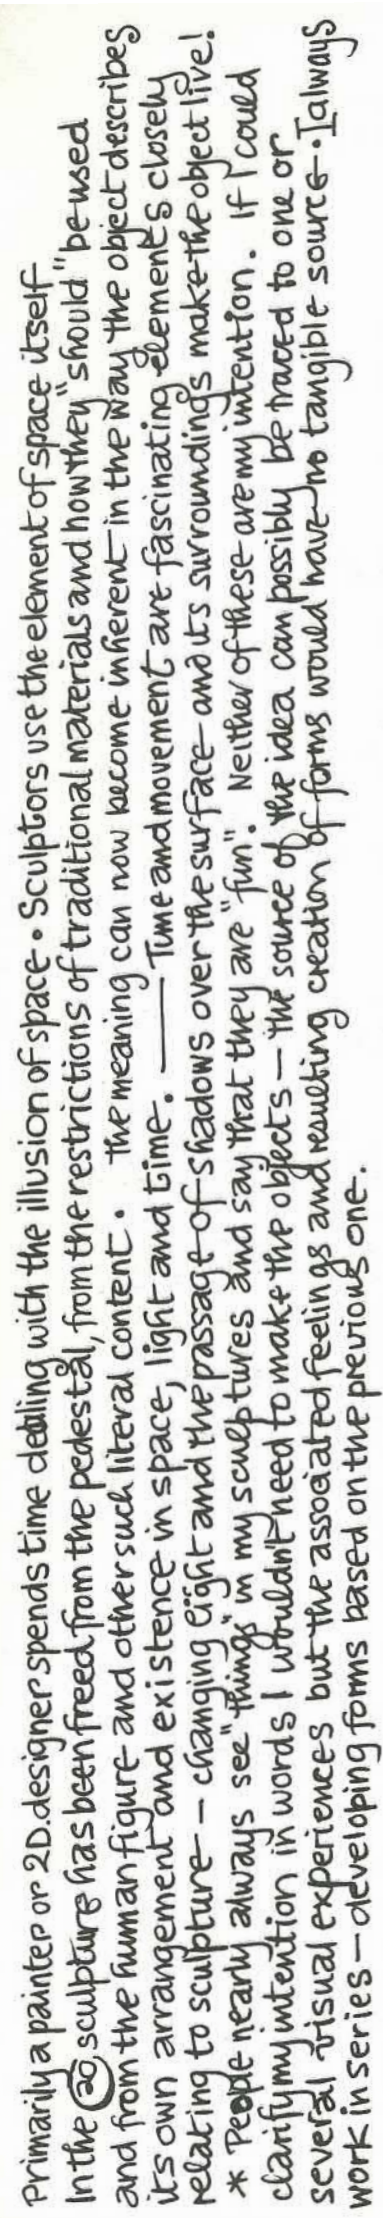 Primarily a painter or 2D.designer spends time dealing with the illusion of space. Sculptors use the element of space itself
In the 20, sculpture has been freed from the pedestal, from the restrictions of traditional materials and how they "should" be used
and from the human figure and other such literal content. The meaning can now become inherent in the way the object describes
its own arrangement and existence in space, light and time. —— Time and movement are fascinating elements closely
relating to sculpture - changing light and the passage of shadows over the surface and its surroundings make the object live!
* People nearly always see "things" in my sculptures and say that they are "fun". Neither of these are my intention. If I could
clarify my intention in words I wouldn't need to make the objects - the source of the idea can possibly be traced to one or
several visual experiences but the associated feelings and resulting creation of forms would have no tangible source. I always
work in series - developing forms based on the previous one.